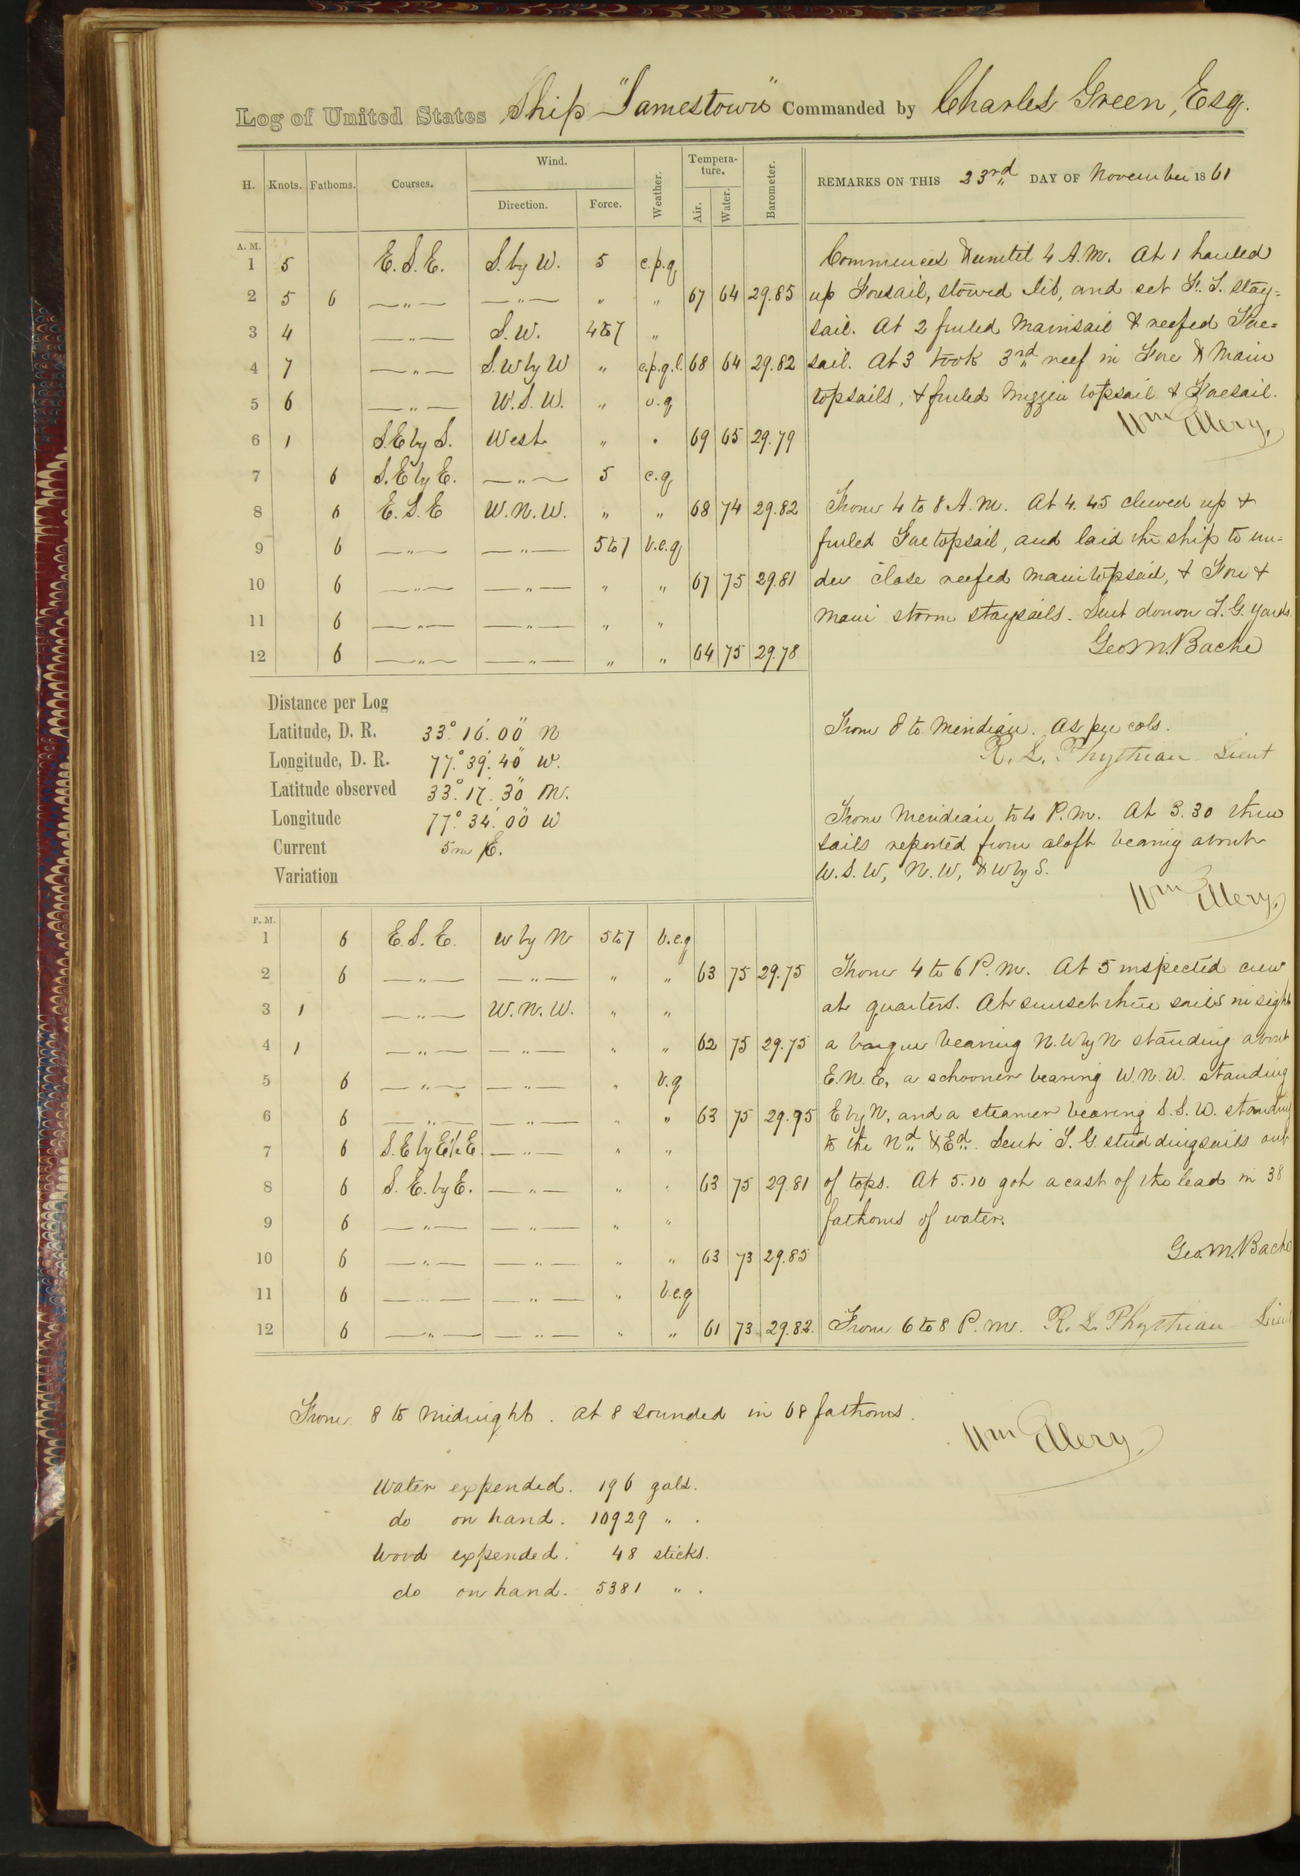 Log of United States Ship "Jamestown" Commanded by Charles Green, Esq.
H. Knots. Fathoms. Courses. Wind. Direction. Force. Weather. Tempera-ture. Air. Water. Barometer.
REMARKS ON THIS 23rd DAY OF November 1861
A. M.
1 5 E.S.E. S. by W. 5 c.p.q
2 5 6 —〃— —〃— 〃 〃 67 64 29.85
3 4 —〃— S.W. 4to7 〃
4 7 —〃— S.W by W 〃 c.p.q.l. 68 64 29.82
5 6 —〃— W.S.W. 〃 o.q
6 1 S.E by S. West 〃 〃 69 65 29.79
7 6 S.E by E. —〃— 5 c.q
8 6 E.S.E W.N.W. 〃 〃 68 74 29.82
9 6 —〃— —〃— 5to7 b.c.q
10 6 —〃— —〃— 〃 〃 67 75 29.81
11 6 —〃— —〃— 〃 〃
12 6 —〃— —〃— 〃 〃 64 75 29.78
Commences & until 4 A.M. At 1 hauled
up Foresail, stowed Jib, and set F. T. stay=
sail. At 2 furled Mainsail & reefed Fore=
sail. At 3 took 3rd reef in Fore & Main
topsails, & furled Mizzen topsail & Foresail.
Wm Ellery.
From 4 to 8 A.M. At 4.45 clewed up &
furled Foretopsail, and laid the ship to un=
der close reefed maintopsail, & Fore &
Main storm staysails. Sent down T.G. yards.
Geo M. Bache
From 8 to Meridian. As per cols.
R. L. Phythian Lieut
From Meridian to 4 P.M. At 3.30 three
sails reported from aloft bearing about
W.S.W, N.W, & W by S.
Wm Ellery.
Distance per Log
Latitude, D. R. 33° 16' 00" N
Longitude, D. R. 77° 39' 40" W.
Latitude observed 33° 17' 30" N.
Longitude 77° 34' 00" W
Current 5m E.
Variation
P. M.
1 6 E.S.E. W by N 5to7 b.c.q
2 6 —〃— —〃— 〃 〃 63 75 29.75
3 1 —〃— W.N.W. 〃 〃
4 1 —〃— —〃— 〃 〃 62 75 29.75
5 6 —〃— —〃— 〃 b.q
6 6 —〃— —〃— 〃 〃 63 75 29.95
7 6 S.E by E½E. —〃— 〃 〃
8 6 S.E. by E. —〃— 〃 〃 63 75 29.81
9 6 —〃— —〃— 〃 〃
10 6 —〃— —〃— 〃 〃 63 73 29.85
11 6 —〃— —〃— 〃 b.c.q
12 6 —〃— —〃— 〃 〃 61 73 29.82.
From 4 to 6 P.M. At 5 inspected crew
at quarters. At sunset three sails in sight
a barque bearing N.W by N standing about
E.N.E, a schooner bearing W.N.W. standing
E by N, and a steamer bearing S.S.W. standing
to the Nd & Ed. Sent T.G studdingsails out
of tops. At 5.10 got a cast of the lead in 38
fathoms of water.
Geo. M. Bache
From 6 to 8 P.M. R. L. Phythian Lieut
From 8 to Midnight. At 8 sounded in 68 fathoms.
Wm Ellery.
Water expended. 196 gals.
do on hand. 10929 〃 .
Wood expended. 48 sticks.
do on hand. 5381 〃 .